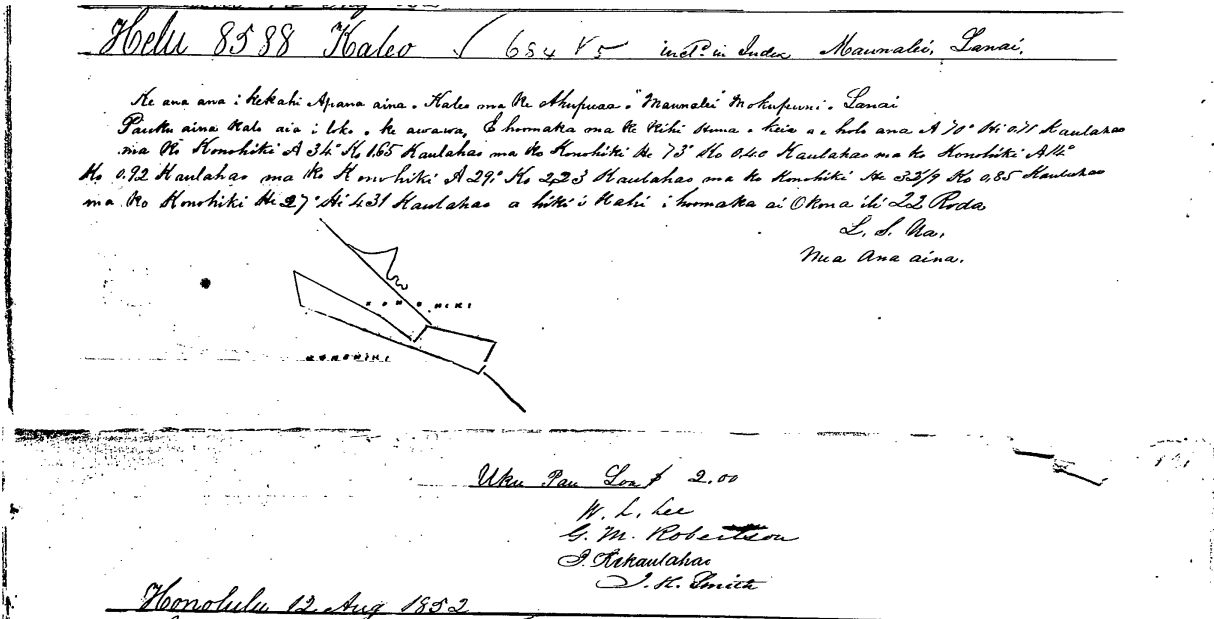 Helu 8588 Kaleo √ 654 V 5 incl.d in Index Maunalei, Lanai.
Ke ana ana i kekahi Apana aina. Kaleo ma Ke Ahupuaa. "Maunalei" Mokupuni. Lanai
Pauku aina Kalo aia i loko o ke awawa, E hoomaka ma Ke Kihi Huna o keia a e holo ana A 70° Hi 0.71 Kaulahao
ma Ko Konohiki A 34° Ko 1.65 Kaulahao ma Ko Konohiki He 73° Ko 0.40 Kaulahao ma Ko Konohiki A 14°
Ko 0.92 Kaulahao ma Ko Konohiki A 29° Ko 2.23 Kaulahao ma Ko Konohiki He Ko 0.85 Kaulahao
ma Ko Konohiki He 27° Hi 4.31 Kaulahao a hiki i Kahi i hoomaka ai Okona ili 22 Roda
L. S. Ua,
Mea Ana aina.
KONOHIKI
KONOHIKI
Uku Pau Loa $ 2.00
W. L. Lee
G. M. Robertson
J. Kekaulahao
J. H. Smith
Honolulu 12 Aug 1852